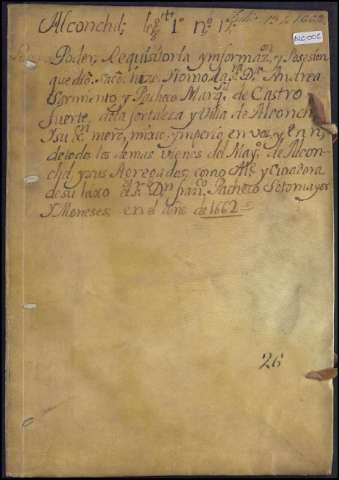 Alconchel; leg.º 1º nº 1º Julio 13 de 1662
Poder, Requisitoria y ynformaz.on y Posesion
que dió, sacó, hizo y tomó la S.ª D.ª Andrea
Sarmiento, y Pacheco Marq.ª de Castro
fuerte, de la fortaleza y Villa de Alconchel
y su x.on mero, mixto ymperio en voz y en n.e
de todos los demas vienes del May.go de Alcon-
chel, y sus Agregados, como M.e y Curadora
de su Hixo el S.r D.n fran.co Pacheco Sotomayor
Y Meneses en el año de 1662
26
ALC-002